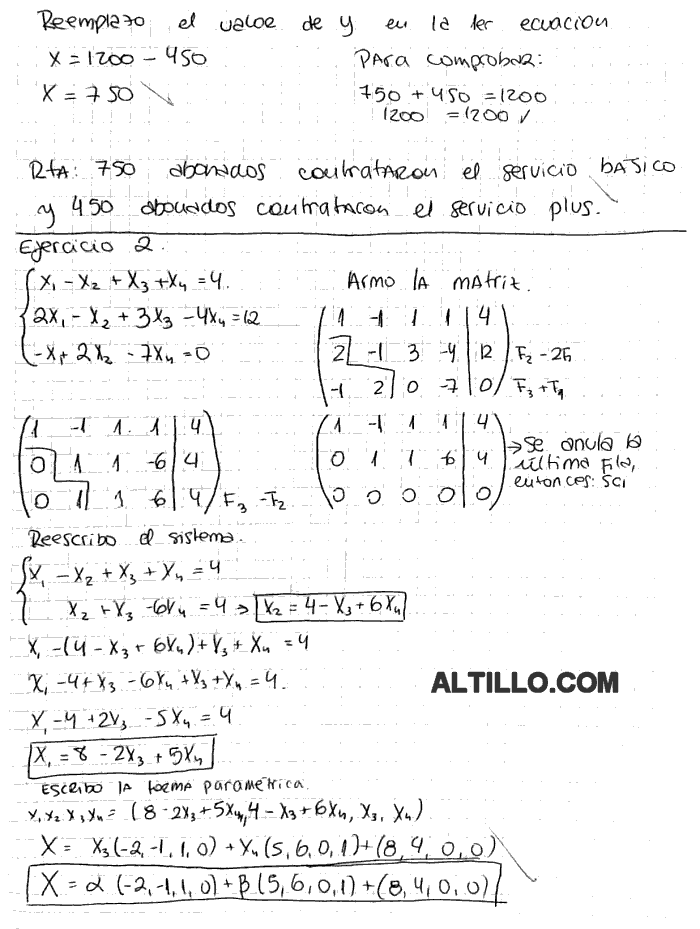 Reemplazo el valor de y en la 1er ecuacion
X = 1200 - 450    Para comprobar:
X = 750    750 + 450 = 1200
1200 = 1200 ✓
Rta: 750 abonados contrataron el servicio basico
y 450 abonados contrataron el servicio plus.
Ejercicio 2.
{ X₁ - X₂ + X₃ + X₄ = 4.    Armo la matriz.
2X₁ - X₂ + 3X₃ - 4X₄ = 12
-X₁ + 2X₂ - 7X₄ = 0
( 1 -1 1 1 | 4 )
( 2 -1 3 -4 | 12 ) F₂ - 2F₁
( -1 2 0 -7 | 0 ) F₃ + F₁
( 1 -1 1 1 | 4 )
( 0 1 1 -6 | 4 )
( 0 1 1 6 | 4 ) F₃ - F₂
( 1 -1 1 1 | 4 )
( 0 1 1 6 | 4 )
( 0 0 0 0 | 0 )
→ Se anula la
última fila,
entonces: SCI
Reescribo el sistema.
{ X₁ - X₂ + X₃ + X₄ = 4
X₂ + X₃ - 6X₄ = 4 → X₂ = 4 - X₃ + 6X₄
X₁ - (4 - X₃ + 6X₄) + X₃ + X₄ = 4
X₁ - 4 + X₃ - 6X₄ + X₃ + X₄ = 4.
X₁ - 4 + 2X₃ - 5X₄ = 4
X₁ = 8 - 2X₃ + 5X₄
ALTILLO.COM
Escribo la forma parametrica.
X₁ X₂ X₃ X₄ = (8 - 2X₃ + 5X₄, 4 - X₃ + 6X₄, X₃, X₄)
X = X₃(-2, -1, 1, 0) + X₄(5, 6, 0, 1) + (8, 4, 0, 0)
X = α (-2, -1, 1, 0) + β (5, 6, 0, 1) + (8, 4, 0, 0)